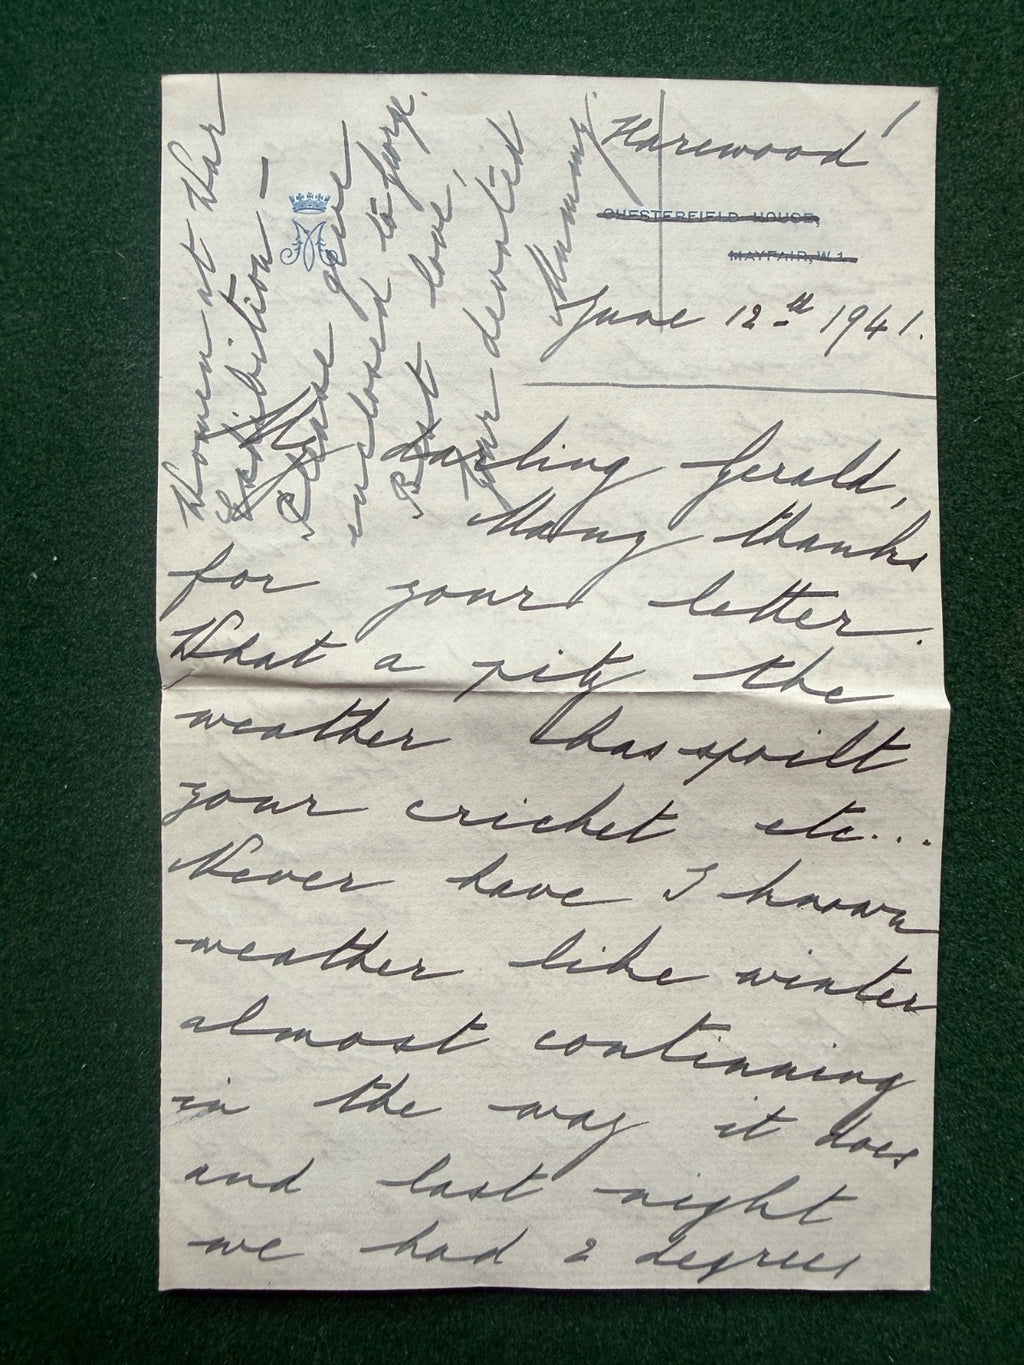 Harewood
CHESTERFIELD HOUSE,
MAYFAIR, W.1.
June 12th 1941.
My darling Gerald,
Many thanks
for your letter.
What a pity the
weather has spoilt
your cricket etc...
Never have I known
weather like winter
almost continuing
in the way it does
and last night
we had 2 degrees
Women at War
Exhibition -
Please give
enclosed to George.
Best love,
Your devoted
Mummy.